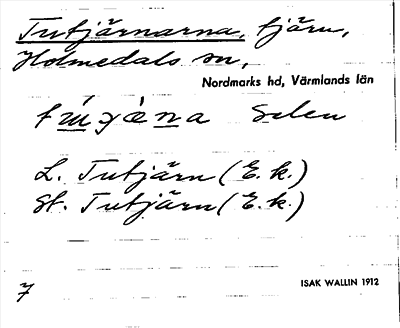 Tutjärnarna, tjärn,
Holmedals sn,
Nordmarks hd, Värmlands län
L. Tutjärn (E. k.)
St. Tutjärn (E. k.)
7
ISAK WALLIN 1912